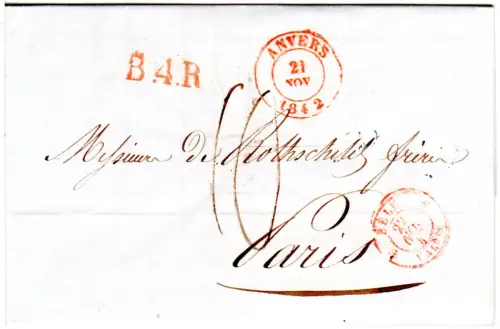 B.4.R
ANVERS
21
NOV
1842
Messieurs de Rothschild frères
Paris
BELG
VALNES